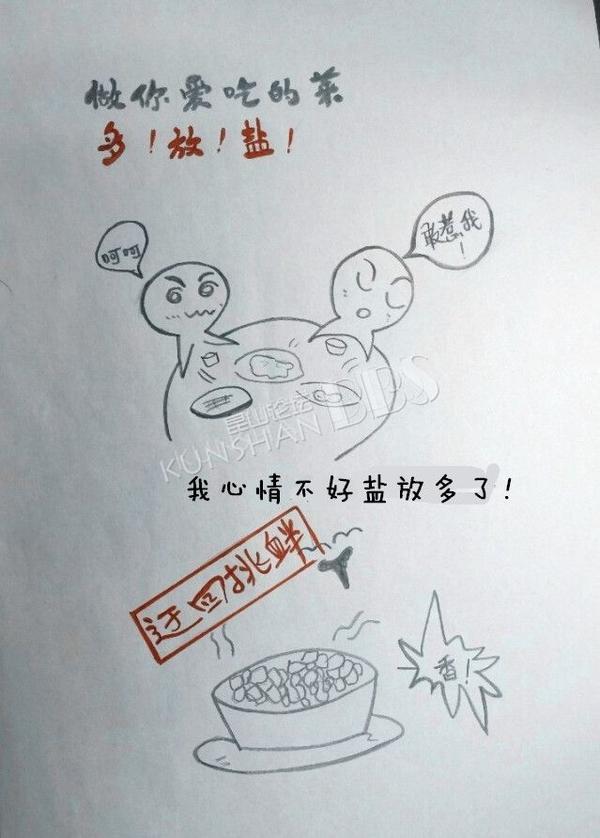 做你爱吃的菜
多！放！盐！
呵呵
敢惹我！
昆山论坛 BBS
KUNSHAN
我心情不好盐放多了！
迂回挑衅
香！